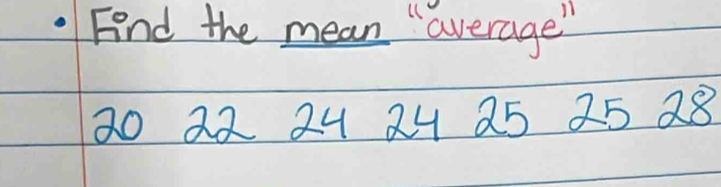 • Find the mean "average"
20 22 24 24 25 25 28